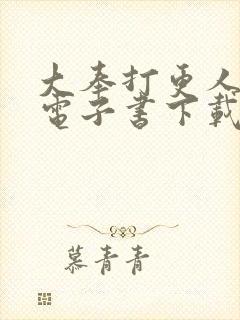 大奉打更人
電子書下載
慕青青